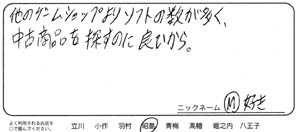 他のゲームショップよりソフトの数が多く、
中古商品を探すのに良いから。
ニックネーム M好き
よく利用されるお店を
○で選んでください。 立川 小作 羽村 昭島 青梅 高幡 堀之内 八王子